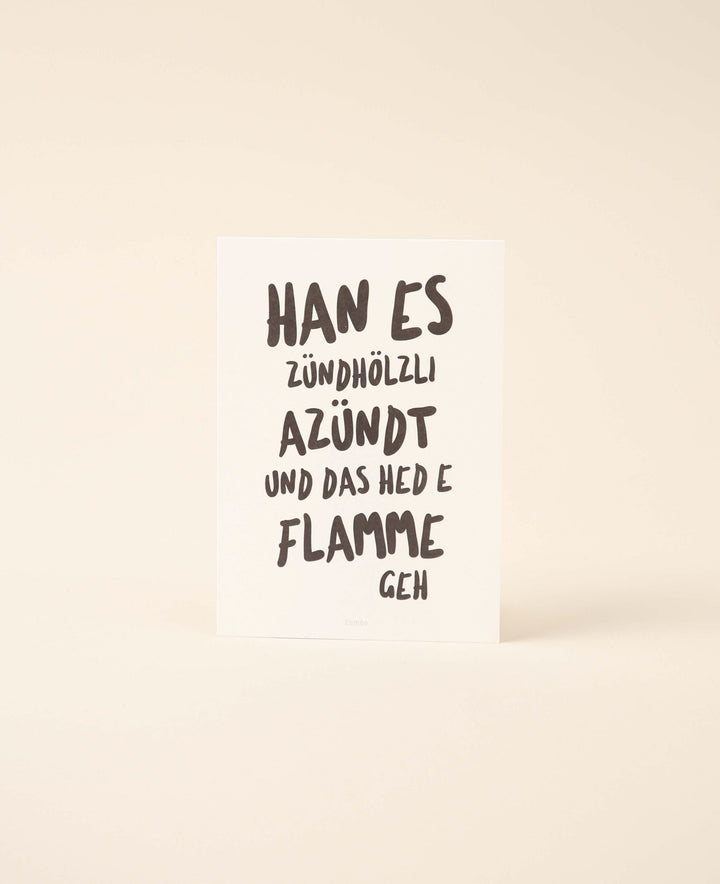 HAN ES
ZÜNDHÖLZLI
AZÜNDT
UND DAS HED E
FLAMME
GEH